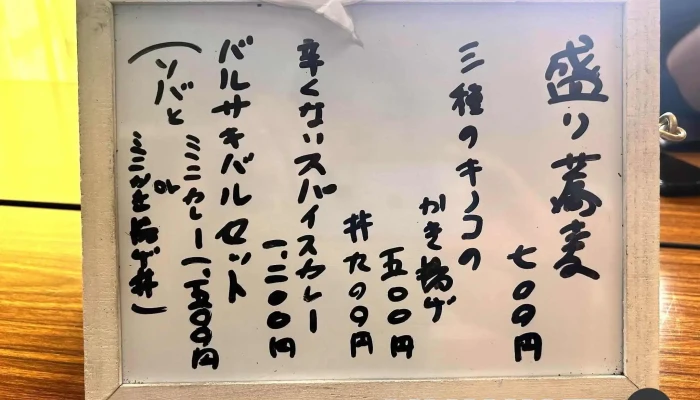 盛り蕎麦
七〇〇円
三種のキノコの
かき揚げ
五〇〇円
丼九〇〇円
辛くないスパイスカレー
一、二〇〇円
バルサキバルセット
一、五〇〇円
(ソバと
ミニカレー
or
ミニかき揚げ丼)